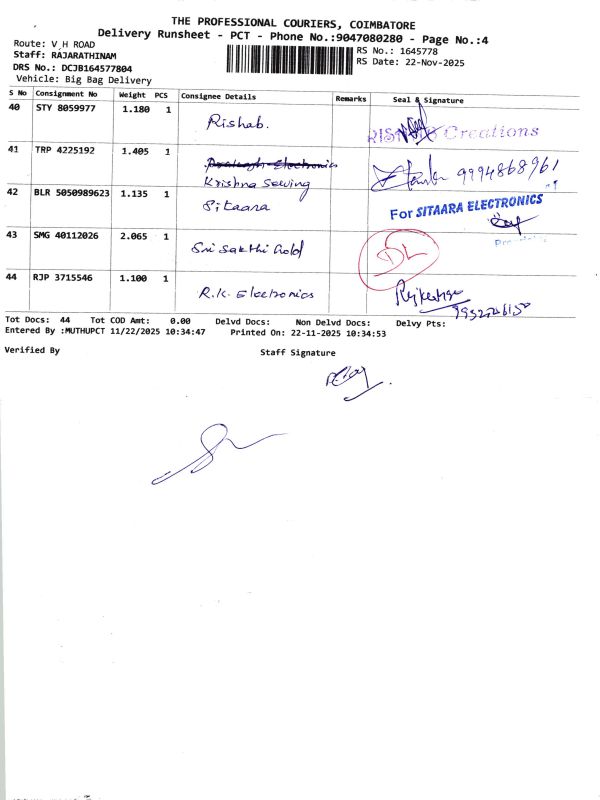 THE PROFESSIONAL COURIERS, COIMBATORE
Delivery Runsheet - PCT - Phone No.:9047080280 - Page No.:4
Route: V H ROAD
Staff: RAJARATHINAM
DRS No.: DCJB164577804
Vehicle: Big Bag Delivery
RS No.: 1645778
RS Date: 22-Nov-2025
S No Consignment No Weight PCS Consignee Details Remarks Seal & Signature
40 STY 8059977 1.180 1 Rishab. Creations
41 TRP 4225192 1.405 1 Electronics
Krishna Sewing 9994868961
42 BLR 5050989623 1.135 1 Sitaara For SITAARA ELECTRONICS
43 SMG 40112026 2.065 1 Sri Sakthi Gold DL
44 RJP 3715546 1.100 1 R.K. Electronics
Tot Docs: 44 Tot COD Amt: 0.00 Delvd Docs: Non Delvd Docs: Delvy Pts:
Entered By :MUTHUPCT 11/22/2025 10:34:47 Printed On: 22-11-2025 10:34:53
Verified By Staff Signature